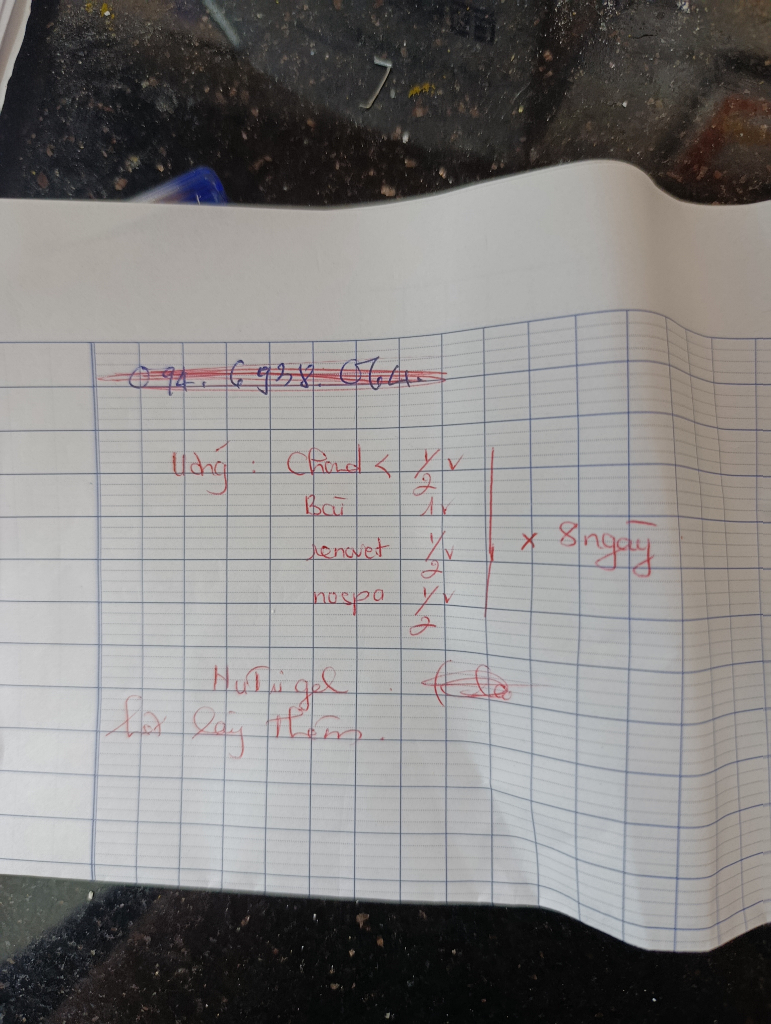 094. 6938. 064.
Uống : < 1/2 v
Bai 1v
renovet 1/2 v
nospa 1/2 v
x 8 ngày
NuTrigel
lấy thêm.